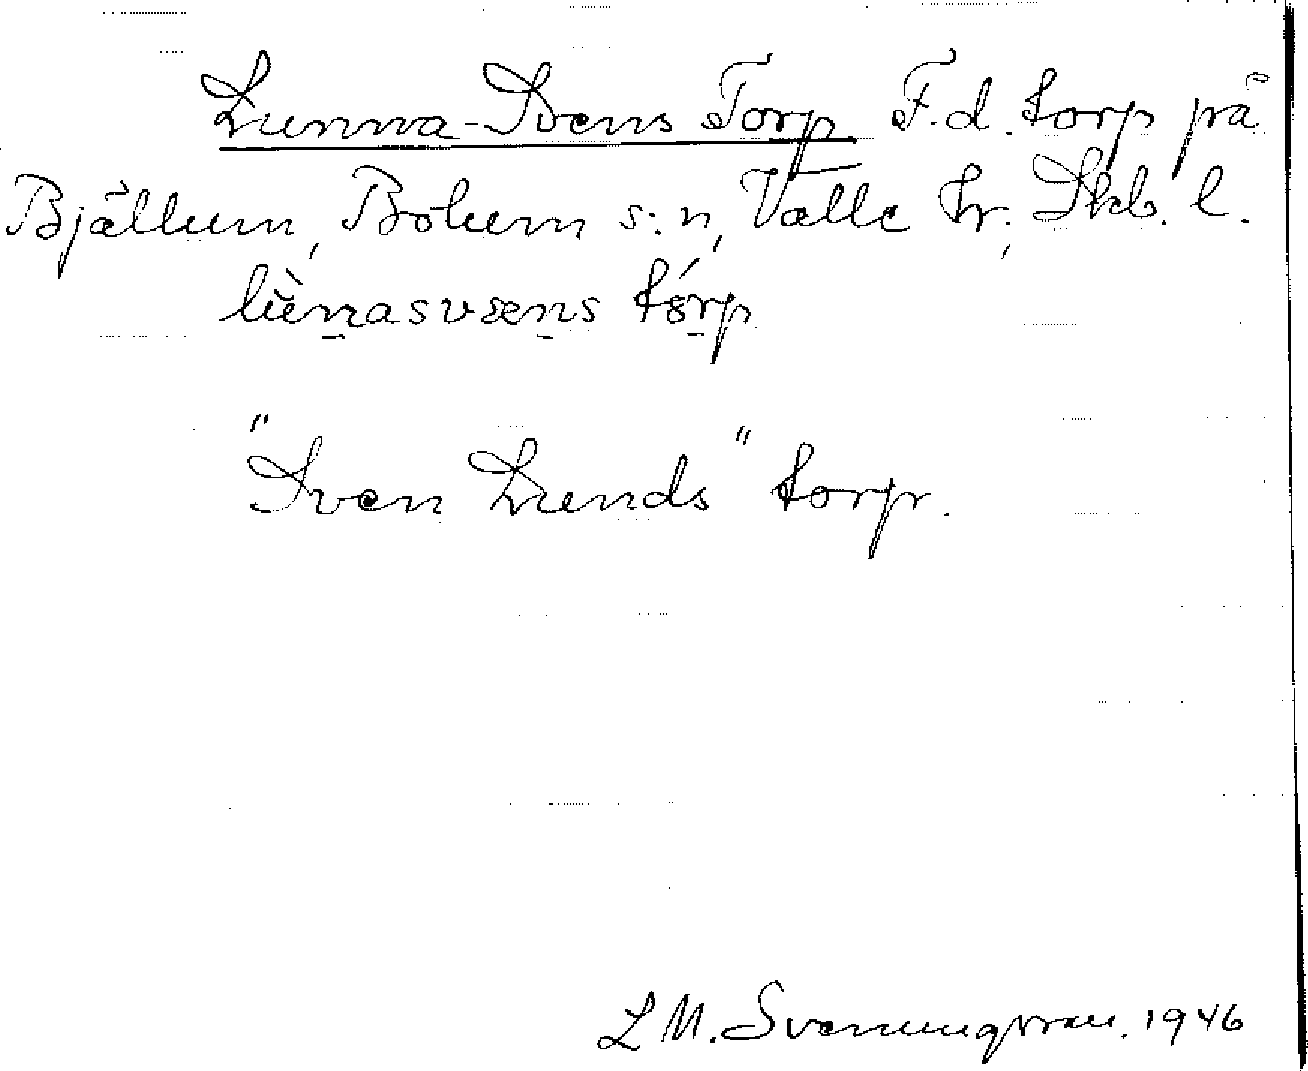 Lunna-Svens Torp F.d. torp på
Bjällum, Bolum s:n, Valle hr; Skb. l.
lùnasvæns tórp
"Sven Lunds" torp.
L M. Svenungsson. 1946